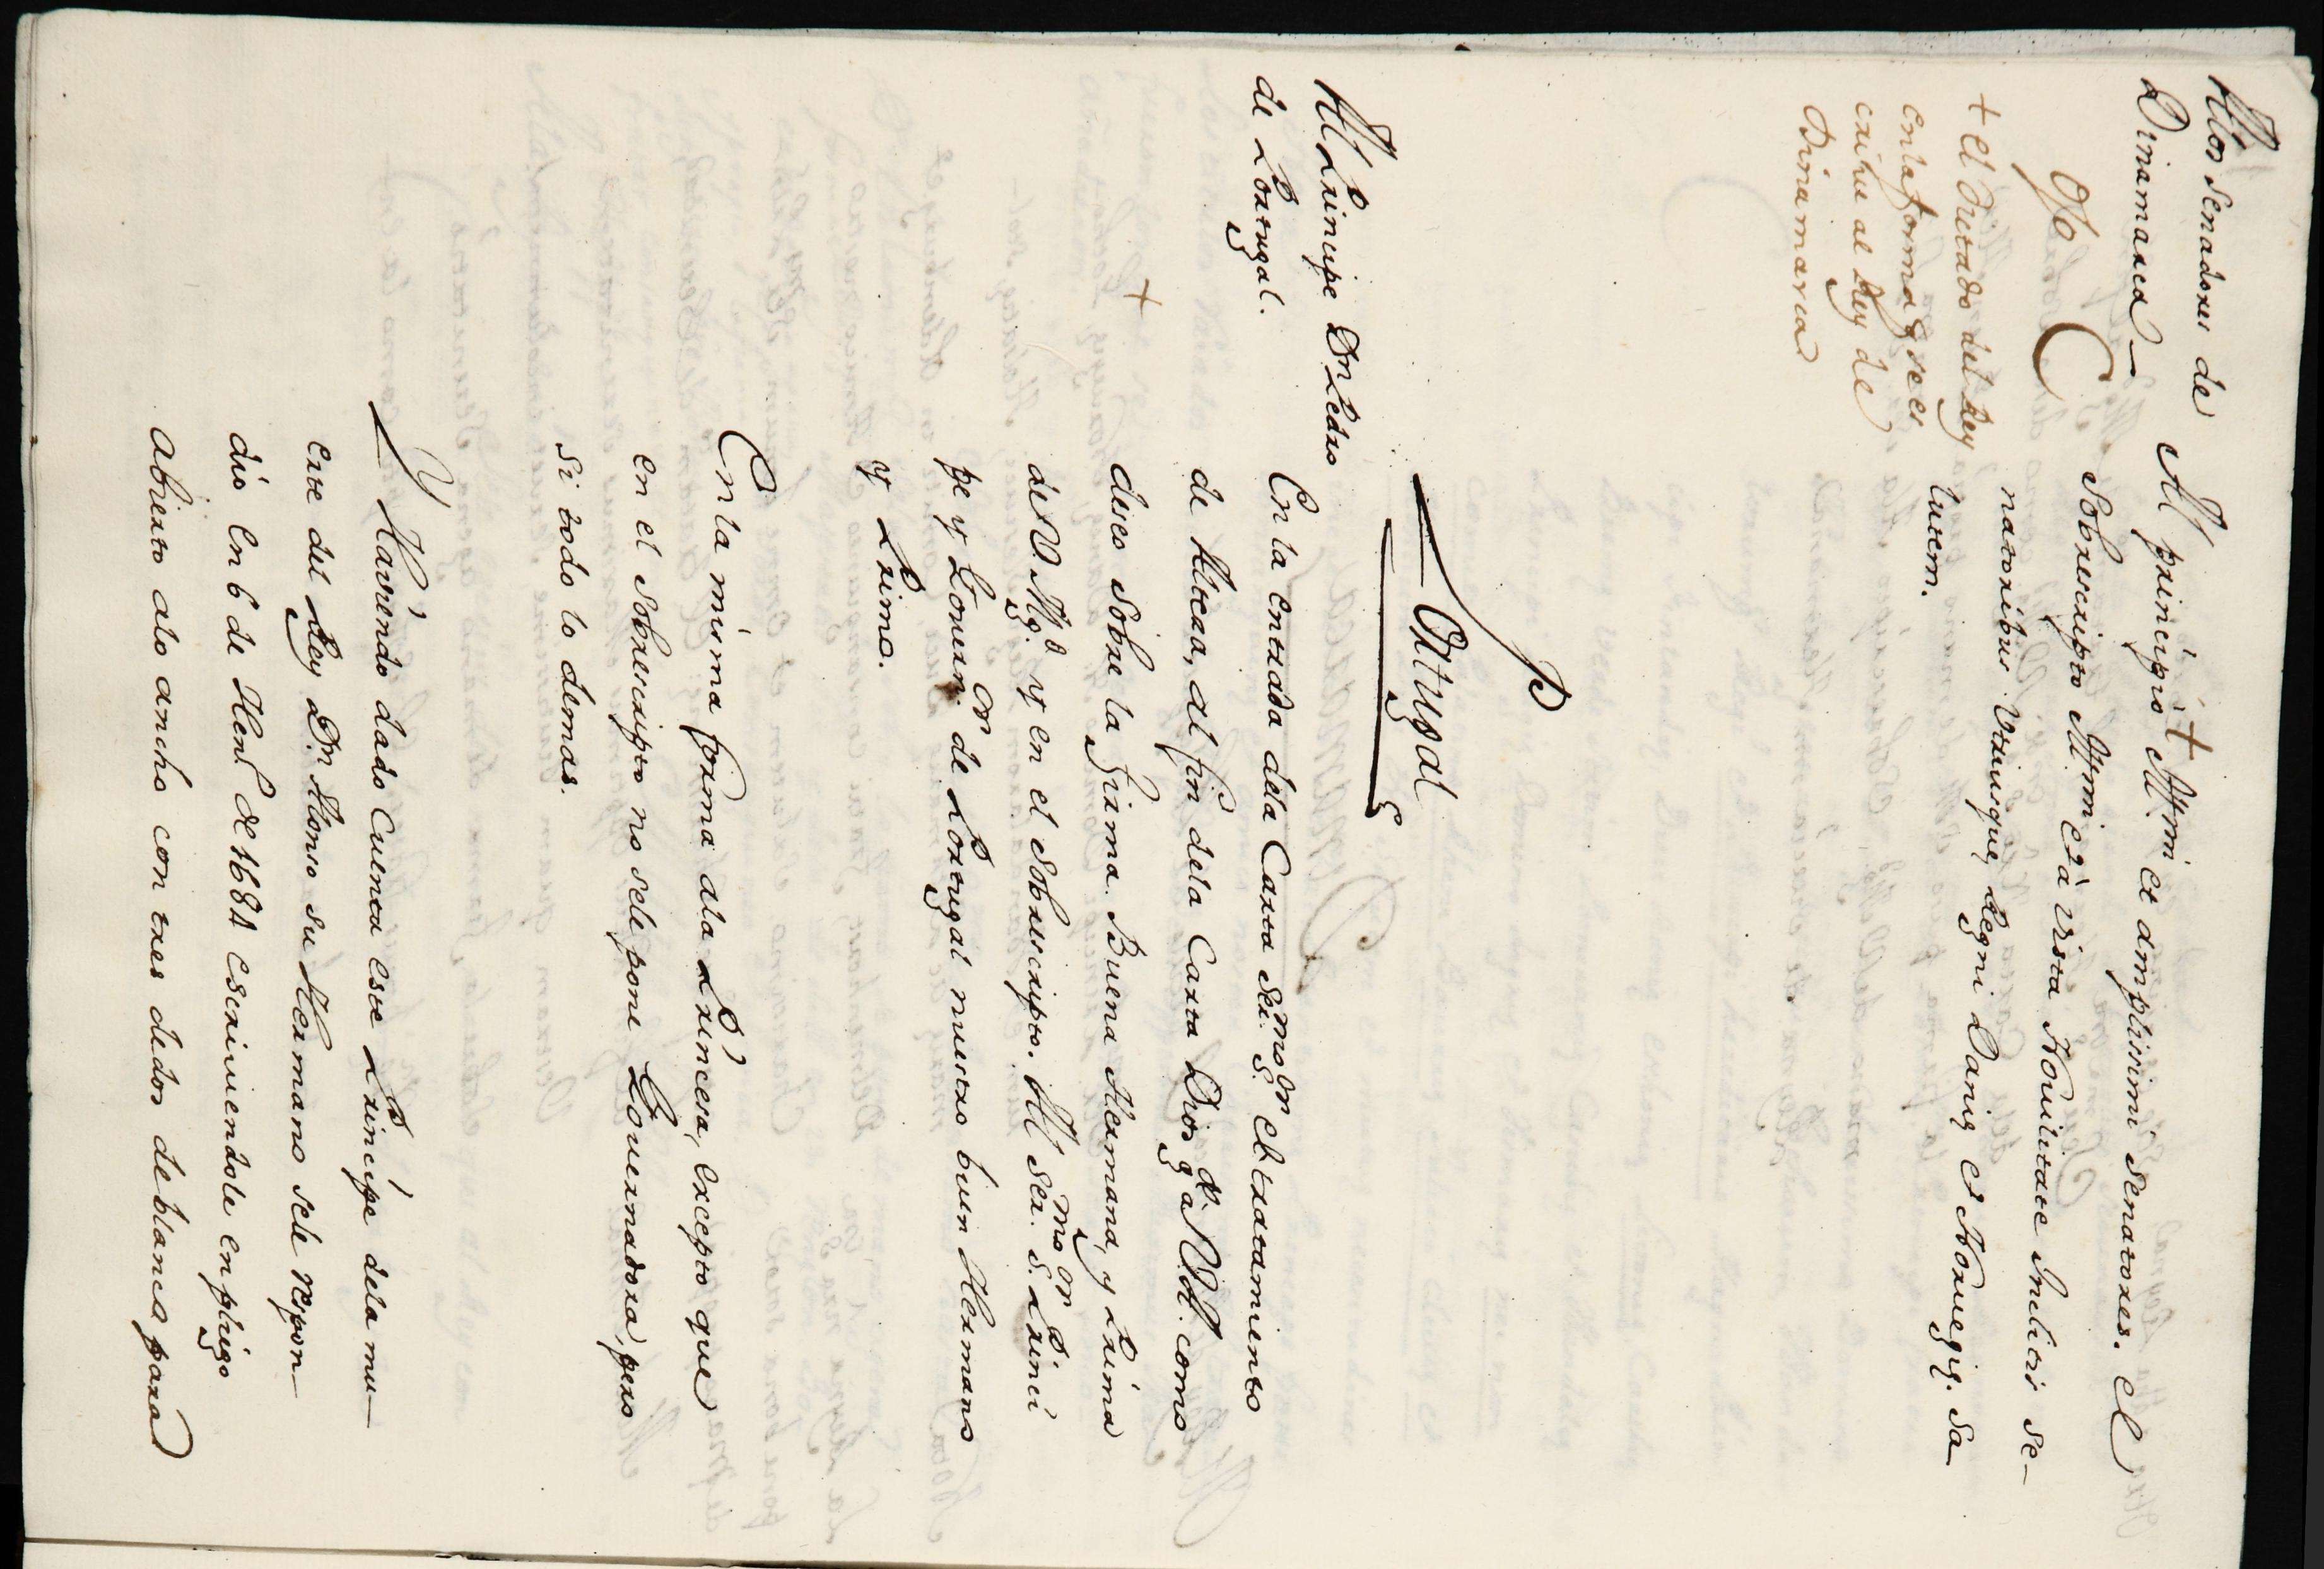 Alos Senadores de
Dinamarca
+ el Dictado del Rey
en la forma q se es
criue al Rey de
Dinamarca
Al principio Ill.mi et amplissimi Senatores. El
Sobrescripto Ill.mi et a vista Nouilitate Inclitis Se-
natoribus Vtriusque Regni Daniq et Noruegiq. Sa
lutem.
Portugal
Al Principe Dn Pedro
de Portugal.
+
En la entrada dela Carta Ser.mo S.or El tratamiento
de Alteza, al fin dela Carta Dios g.de a V.A. como
dico sobre la firma Buena Hermana, y Prima
de V. Mg.d y en el Sobrescripto. Al Ser.mo S.or Princi
pe y Gouern.or de Portugal nuestro buen Hermano
y Primo.
En la misma forma ala Princesa, excepto que
en el Sobrescripto no sele pone Gouernadora, pero
si todo lo demas.
Y Hauiendo dado Cuenta este Principe dela mu-
erte del Rey Dn Alonso su Hermano sele respon-
dio en 6 de Hen.o de 1684 escriuiendole en pliego
abierto alo ancho con tres dedos de blanco para